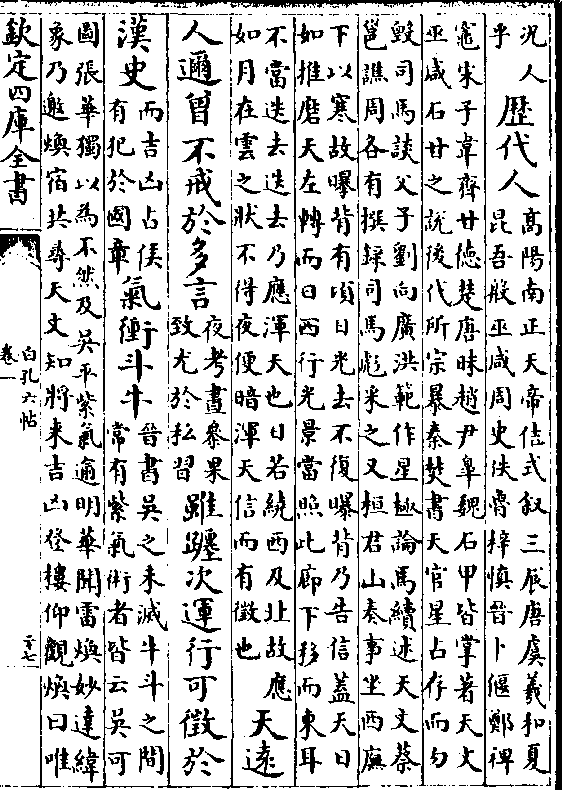 況人
乎
歷代人
高陽南正天帝佶式叙三辰唐虞羲和夏
昆吾殷巫咸周史佚魯梓慎晉卜偃鄭裨
竈宋子韋齊甘德楚唐昧趙尹臯魏石甲皆掌著天文
巫咸石甘之說後代所宗暴秦焚書天官星占存而勿
毀司馬談父子劉向廣洪範作星極論馬續述天文蔡
邕譙周各有撰錄司馬彪采之又桓君山奏事坐西廡
下以寒故曝背有頃日光去不復曝背乃告信蓋天日
如推磨天左轉而日西行光景當照此廊下移而東耳
不當迭去迭去乃應渾天也日若繞西及北故應
如月在雲之狀不得夜便暗渾天信而有徵也
天遠
人邇曾不戒於多言
夜考晝參果
致尤於私習
雖躔次運行可徵於
漢史
而吉凶占候
有犯於國章
氣衝斗牛
晉書吳之未滅牛斗之間
常有紫氣術者皆云吳可
圖張華獨以為不然及吳平紫氣逾明華聞雷煥妙達緯
象乃邀煥宿共尋天文知將来吉凶登樓仰觀煥曰唯
欽定四庫全書
白孔六帖
卷一